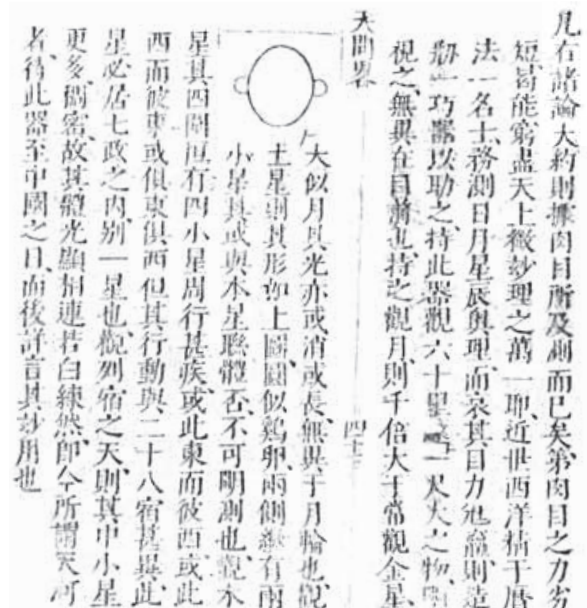 凡右諸論大約則據肉目所及測而已矣第肉目之力劣
短曷能窮盡天上微妙理之萬一耶近世西洋精于曆
法一名士務測日月星辰奧理而哀其目力尪羸則造
創一巧器以助之持此器觀六十里遠一尺大之物明
視之無異在目前也持之觀月則千倍大于常觀金星
天問畧
四十三
大似月其光亦或消或長無異于月輪也觀
土星則其形如上圖圓似鷄卵兩側繼有兩
小星其或與本星聯體否不可明測也觀木
星其四圍恒有四小星周行甚疾或此東而彼西或此
西而彼東或俱東俱西但其行動與二十八宿甚異此
星必居七政之內別一星也觀列宿之天則其中小星
更多稠密故其體光顯相連若白練然即今所謂天河
者待此器至中國之日而後詳言其妙用也